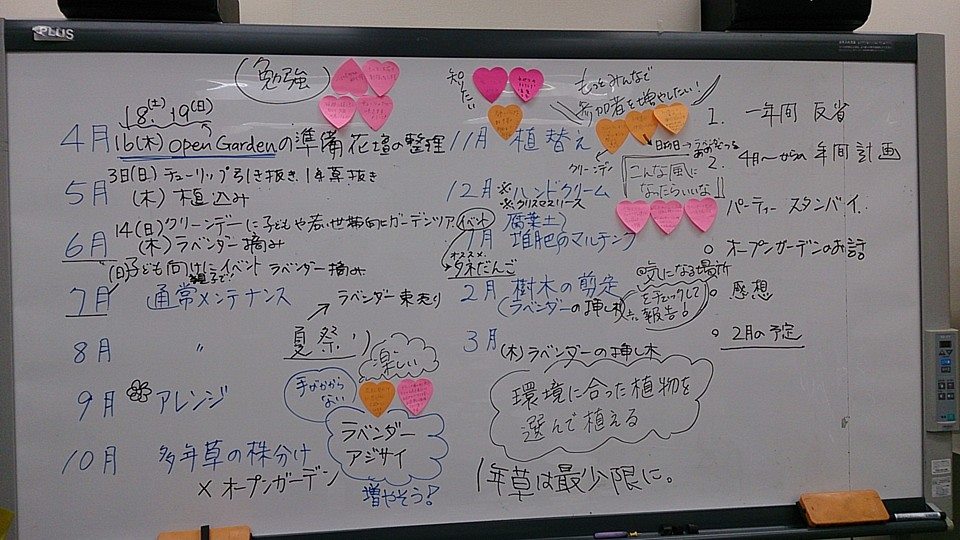 PLUS
勉強
知りたい
もっとみんなで
参加者を増やしたい!
18(土) 19(日)
4月 16(木) open Gardenの準備 花壇の整理
5月 3日(日) チューリップ引き抜き、1年草抜き
(木) 植込み
6月 14(日) クリーンデーに子どもや若い世帯向にガーデンツアー イベント
(木) ラベンダー摘み
(日) 子ども向けにイベント ラベンダー摘み
親子で
7月 通常メンテナンス
→ ラベンダー束売り
8月 〃 夏祭り
楽しい
手がかからない
9月 アレンジ
ラベンダー
アジサイ
増やそう!
10月 多年草の株分け
× オープンガーデン
11月 植替え
クリーンデー
こんな風に
なったらいいな
12月 ※ハンドクリーム
※クリスマスリース
腐葉土
1月 堆肥のマルチング
オススメ
タネだんご
2月 樹木の剪定
(ラベンダーの挿し木)
気になる場所
をチェックして
報告!
3月 (木) ラベンダーの挿し木
環境に合った植物を
選んで植える
1年草は最少限に。
1. 一年間 反省
2. 4月〜からの 年間計画
パーティー スタンバイ.
○ オープンガーデンのお話
○ 感想
○ 2月の予定